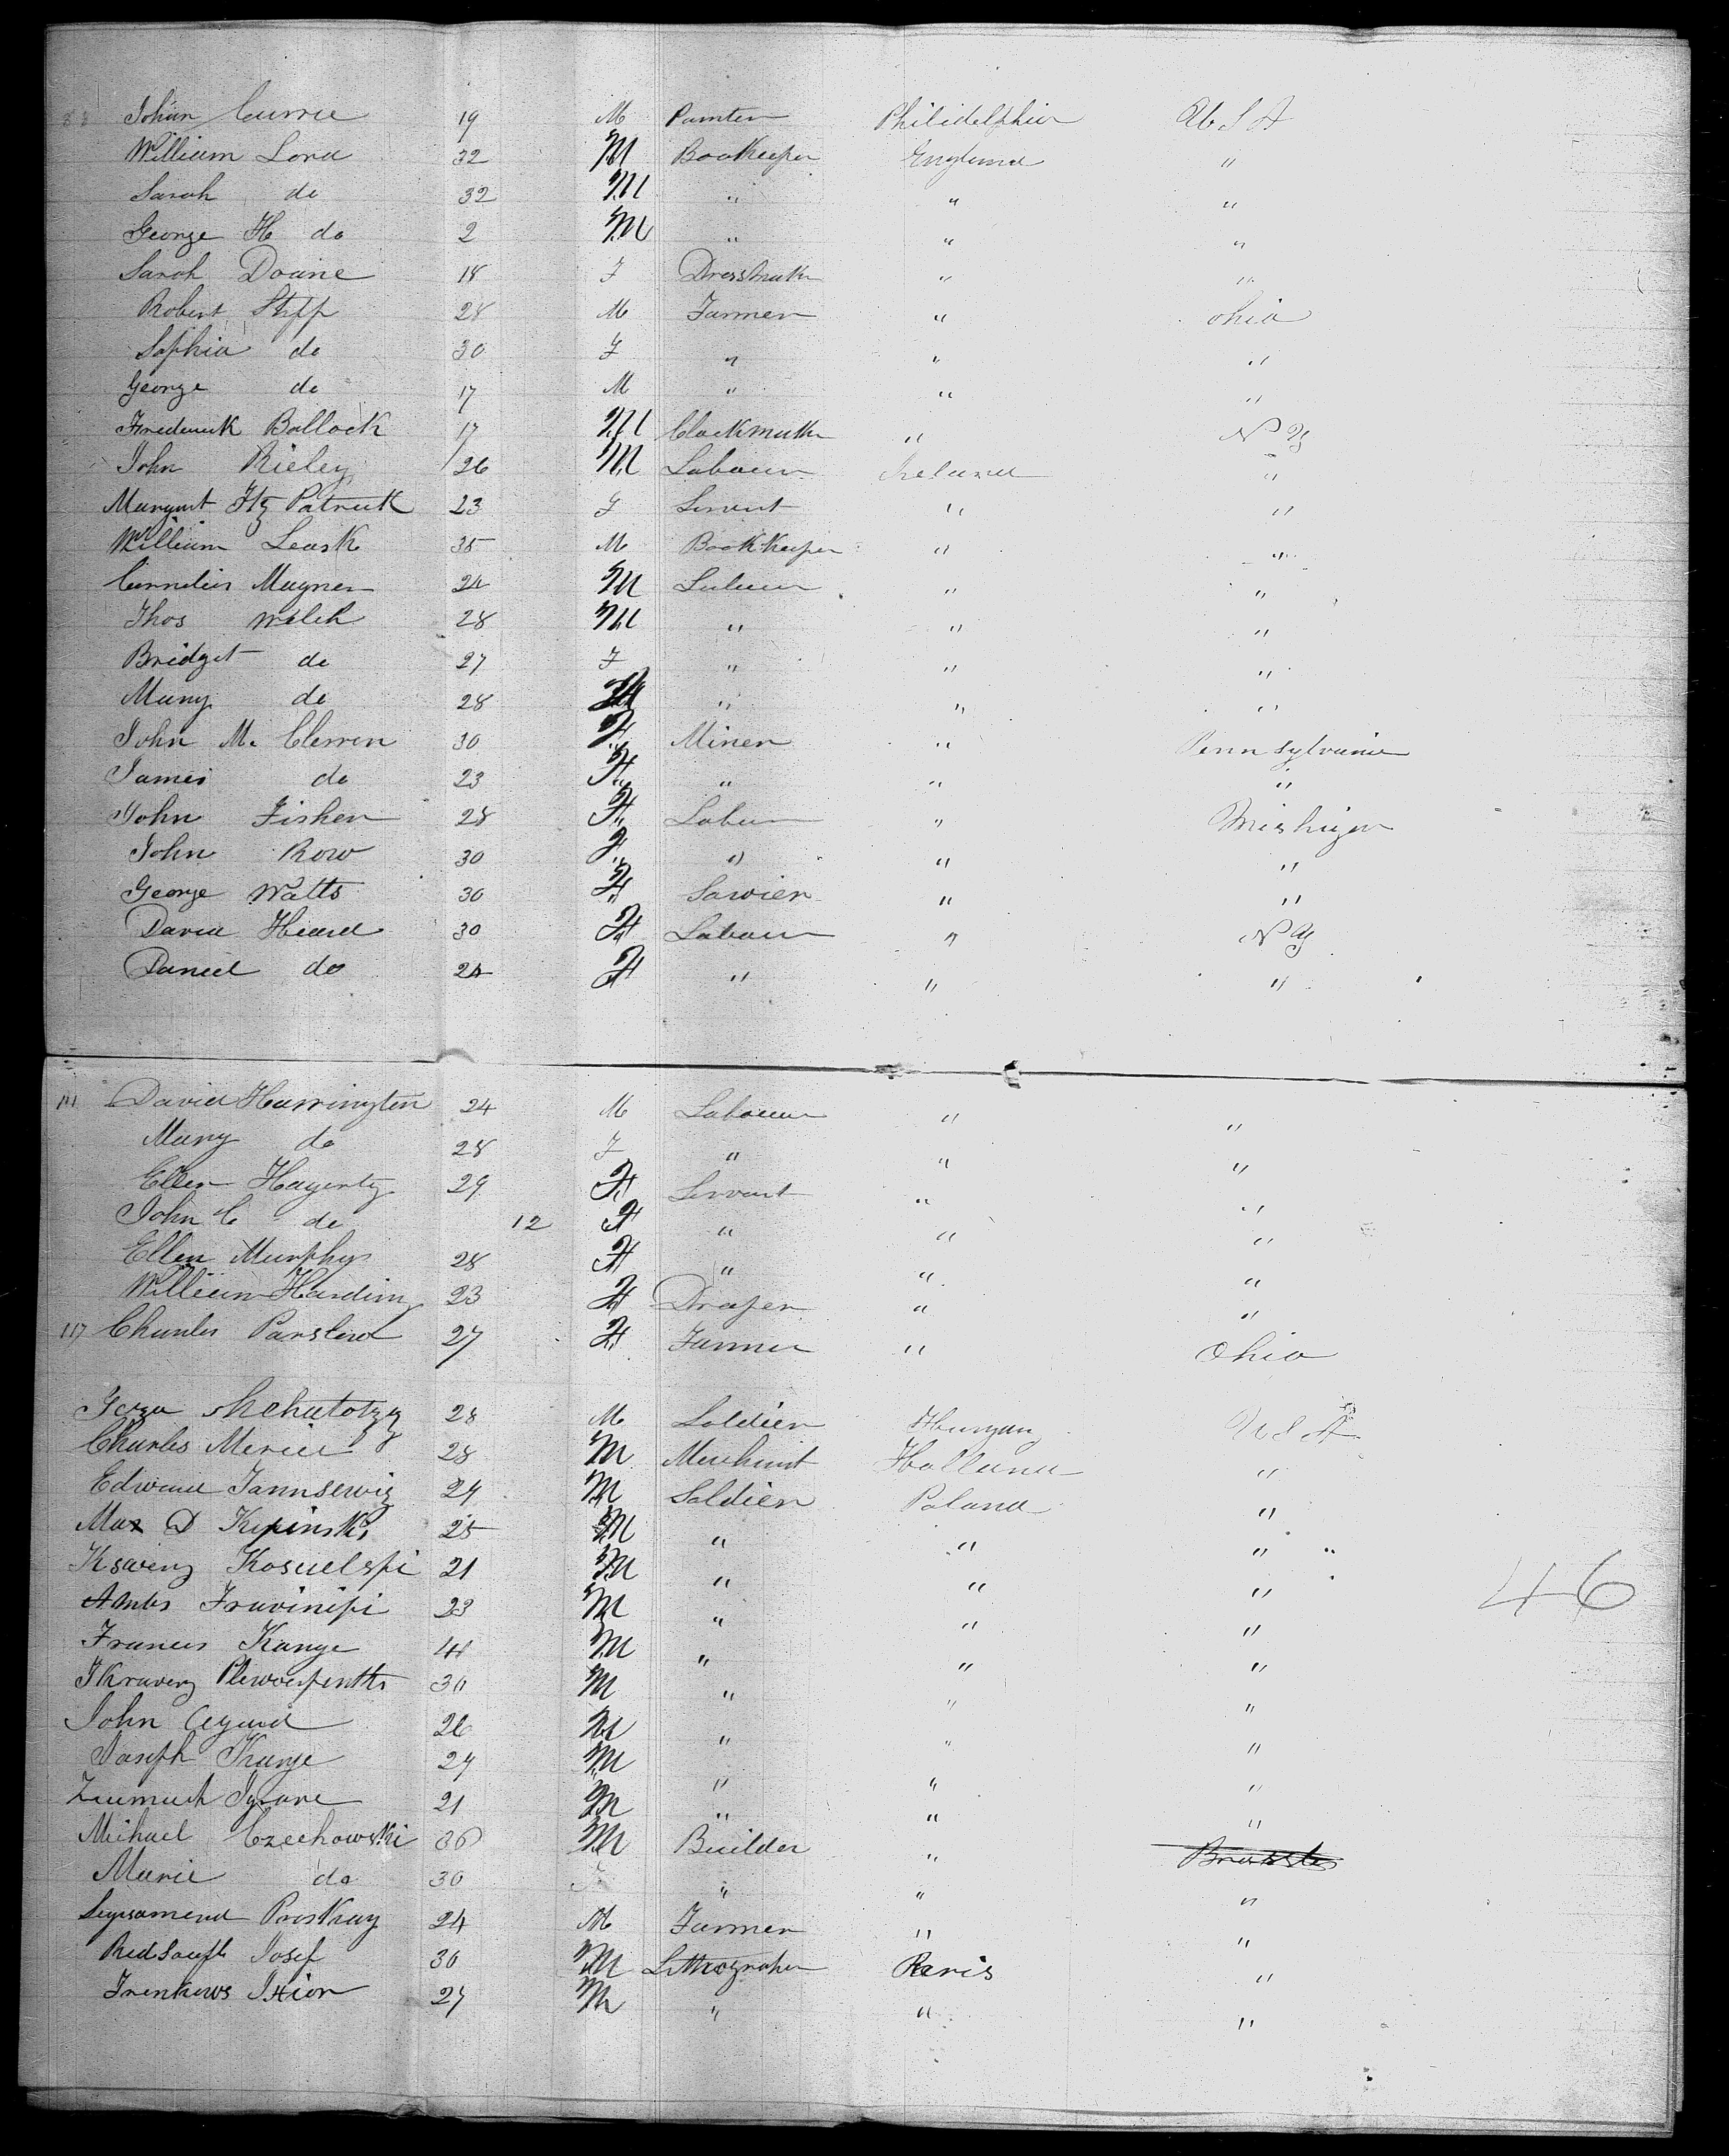 88 Johan Currie 19 M Painter Philidelphia U S A
William Lord 32 M Bookeeper England "
Sarah do 32 M " " "
George H do 2 M " " "
Sarah Doane 18 F Dressmaker " "
Robert Stipp 28 M Farmer " Ohio
Sophia do 30 F " " "
George do 17 M " " "
Frederick Ballock 17 M Clockmaker " N Y
John Rieley 26 M Labour Ireland "
Margaret Fitz Patrick 23 F Servent " "
William Leask 35 M Book Keeper " "
Cornelius Magner 24 M Labour " "
Thos Welch 28 M " " "
Bridget do 27 F " " "
Mary do 28 " " "
John Mc Clerren 30 Miner " Pennsylvania
James do 23 " " "
John Fisher 28 Labour " Mishigan
John Row 30 " " "
George Watts 30 Sawier " "
David Heard 30 Labour " N Y
Daniel do 24 " " "
111 David Harrington 24 M Labour " "
Mary do 28 F " " "
Ellen Hagerty 29 Servant " "
John C do 12 " " "
Ellen Murphy 28 " " "
William Harding 23 Draper " "
117 Charles Parslow 27 Farmer " Ohio
28 M Soldier Hungary U S A
Charles Merier 28 M Merchant Holland "
Edward Jannsewig 24 M Soldier Poland "
Max D Kipinski 25 M " " "
Ksaverz Kosuelspi 21 M " " "
Fravinipi 23 M " " "
Frances Kange 41 M " " "
30 M " " "
John 26 M " " "
Joseph Kange 24 M " " "
21 M " " "
Michael Czechowski 36 M Builder " Brussles
Marie do 30 F " " "
Proskay 24 M Farmer " "
Josef 30 M Lithographer Paris "
27 M " " "
46